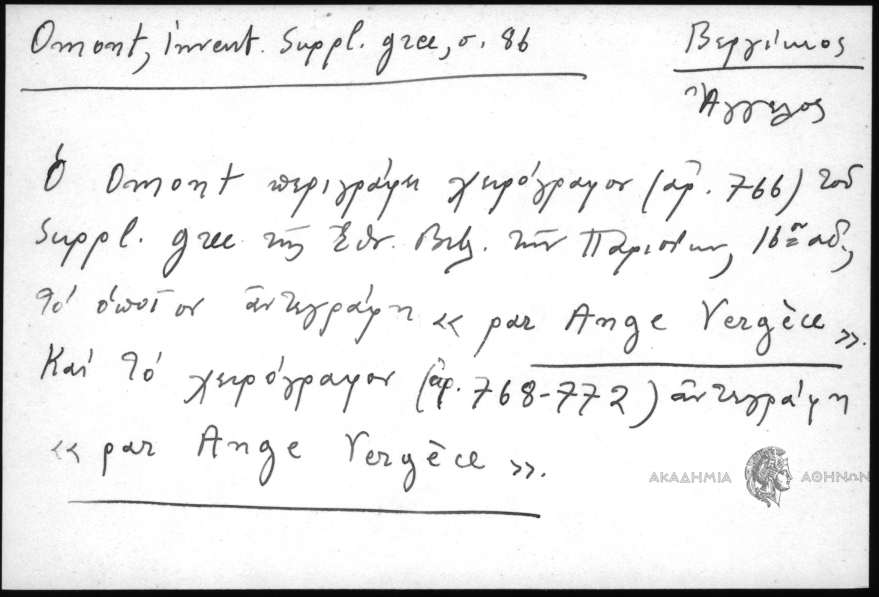 Omont, invent. Suppl. grec, σ. 86
Βεργίκιος
Ἄγγελος
Ὁ Omont περιγράφει χειρόγραφον (ἀρ. 766) τοῦ
Suppl. grec τῆς Ἐθν. Βιβ. τῶν Παρισίων, 16ου αἰ.,
τὸ ὁποῖον ἀντεγράφη « par Ange Vergèce ».
Καὶ τὸ χειρόγραφον (ἀρ. 768-772) ἀντεγράφη
« par Ange Vergèce ».
ΑΚΑΔΗΜΙΑ ΑΘΗΝΩΝ